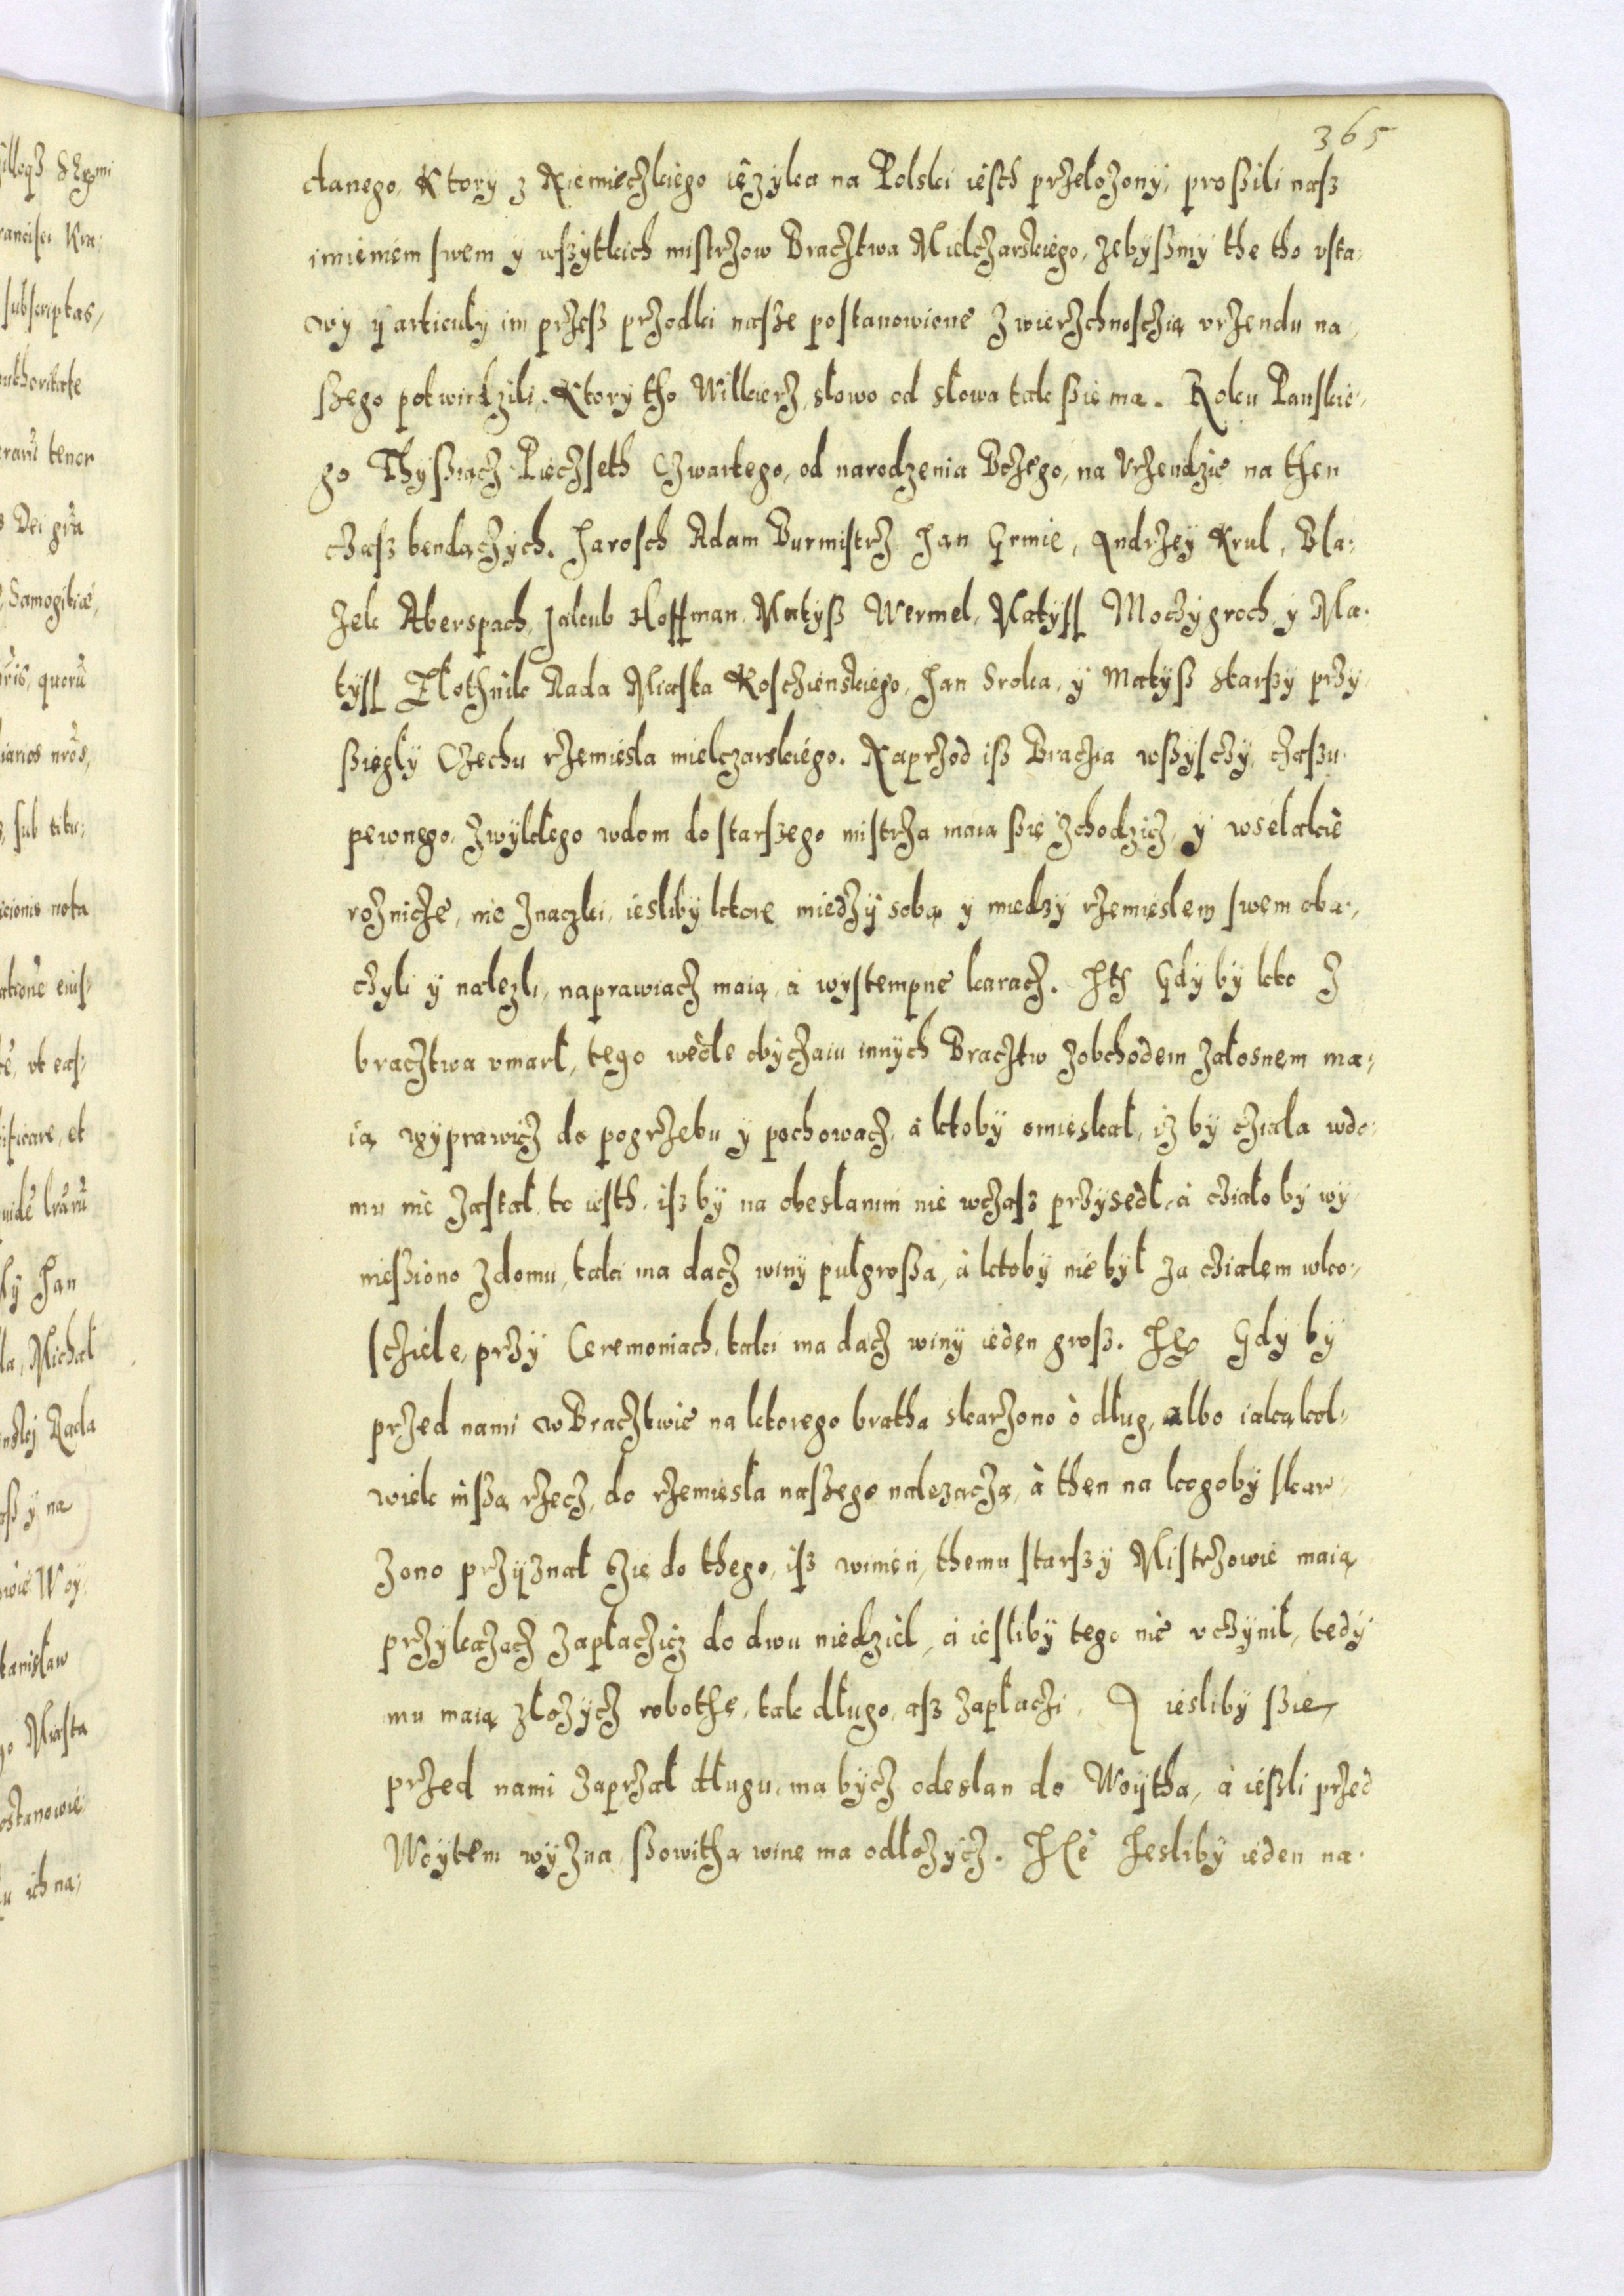 365
danego, Ktory z Niemieczkiego ięzyka na Polski iesth przełozony, prośili nasz
imieniem swem y wszytkich mistrzow Bracztwa Mielczarskiego, zebysmy the tho vsta,
wy y articuły im przesz przodki nasze postanowione zwierzchnosczią vrzendu na,
szego potwirdzili. Ktory tho Wilkierz, słowo od słowa tak szie ma. Roku Panskie,
go Thysziącz Pięczseth Czwartego, od narodzenia Bożego, na Vrzendzie na then
czasz bendączych. Jarosch Adam Burmistrz Jan Grmie, Andrzey Krul, Bla,
zek Aberspach, Jakub Hoffman, Matysz Wermel, Matyss Moczygroch, y Ma,
tyss Złothnik Rada Miasta Kosczienskiego, Jan Sroka, y Matysz starszy przy,
sziegły Czechu rzemiesla mielczarskiego. Naprzod isz Braczia wszysczy, czaszu
pewnego, zwykłego wdom do starszego mistrza maia szię zchodzicz, y wselakie
roznicze, nie znaczki, iesliby ktore miedzy sobą y miedzy rzemięslem swem oba,
czyli y nalezli, naprawiacz maią, a wystempne karacz. Ite Gdy by kto z
bracztwa vmarł, tego wedle obyczaiu innych Bracztw zobchodem załosnem ma,
ią wyprawicz do pogrzebu y pochowacz, a ktoby omieskał, iz by cziała wdo,
mu nie zastał, to iesth, isz by na obesłanim nie wczasz przysedł, a cziało by wy
nieszono zdomu, taki ma dacz winy pulgrosza, a ktoby nie był za cziałem wko,
scziele, przy Ceremoniach, taki ma dacz winy ieden grosz. Ite Gdy by
przed nami w Bracztwie na ktorego bratha skarzono o dług, albo iakąkol,
wiek insza rzecz, do rzemiesła naszego nalezączą, a then na kogoby skar,
zono przyznał szie do thego, isz winien, themu starszy Mistrzowie maią
przykazacz zapłaczicz do dwu niedziel, a iesliby tego nie vczynił, tedy
mu maią złozycz robothę, tak długo, asz zapłaczi. A iesliby szie
przed nami zaprzał długu, ma bycz odesłan do Woytha, a ieszli przed
Woytem wyzna, szowithą winę ma odłozycz. Ite Jesliby ieden na,